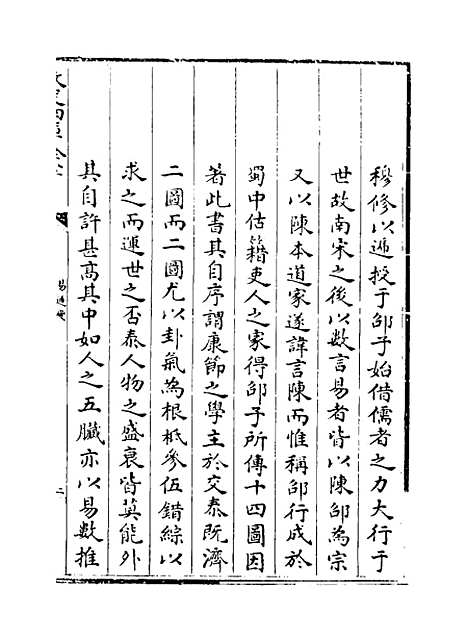 穆修以遞授于邵子始借儒者之力大行于
世故南宋之後以數言易者皆以陳邵為宗
又以陳本道家遂諱言陳而惟稱邵行成於
蜀中估籍吏人之家得邵子所傳十四圖因
著此書其自序謂康節之學主於交泰既濟
二圖而二圖尤以卦氣為根柢參伍錯綜以
求之而運世之否泰人物之盛衰皆莫能外
其自許甚高其中如人之五臟亦以易數推
易通變
二